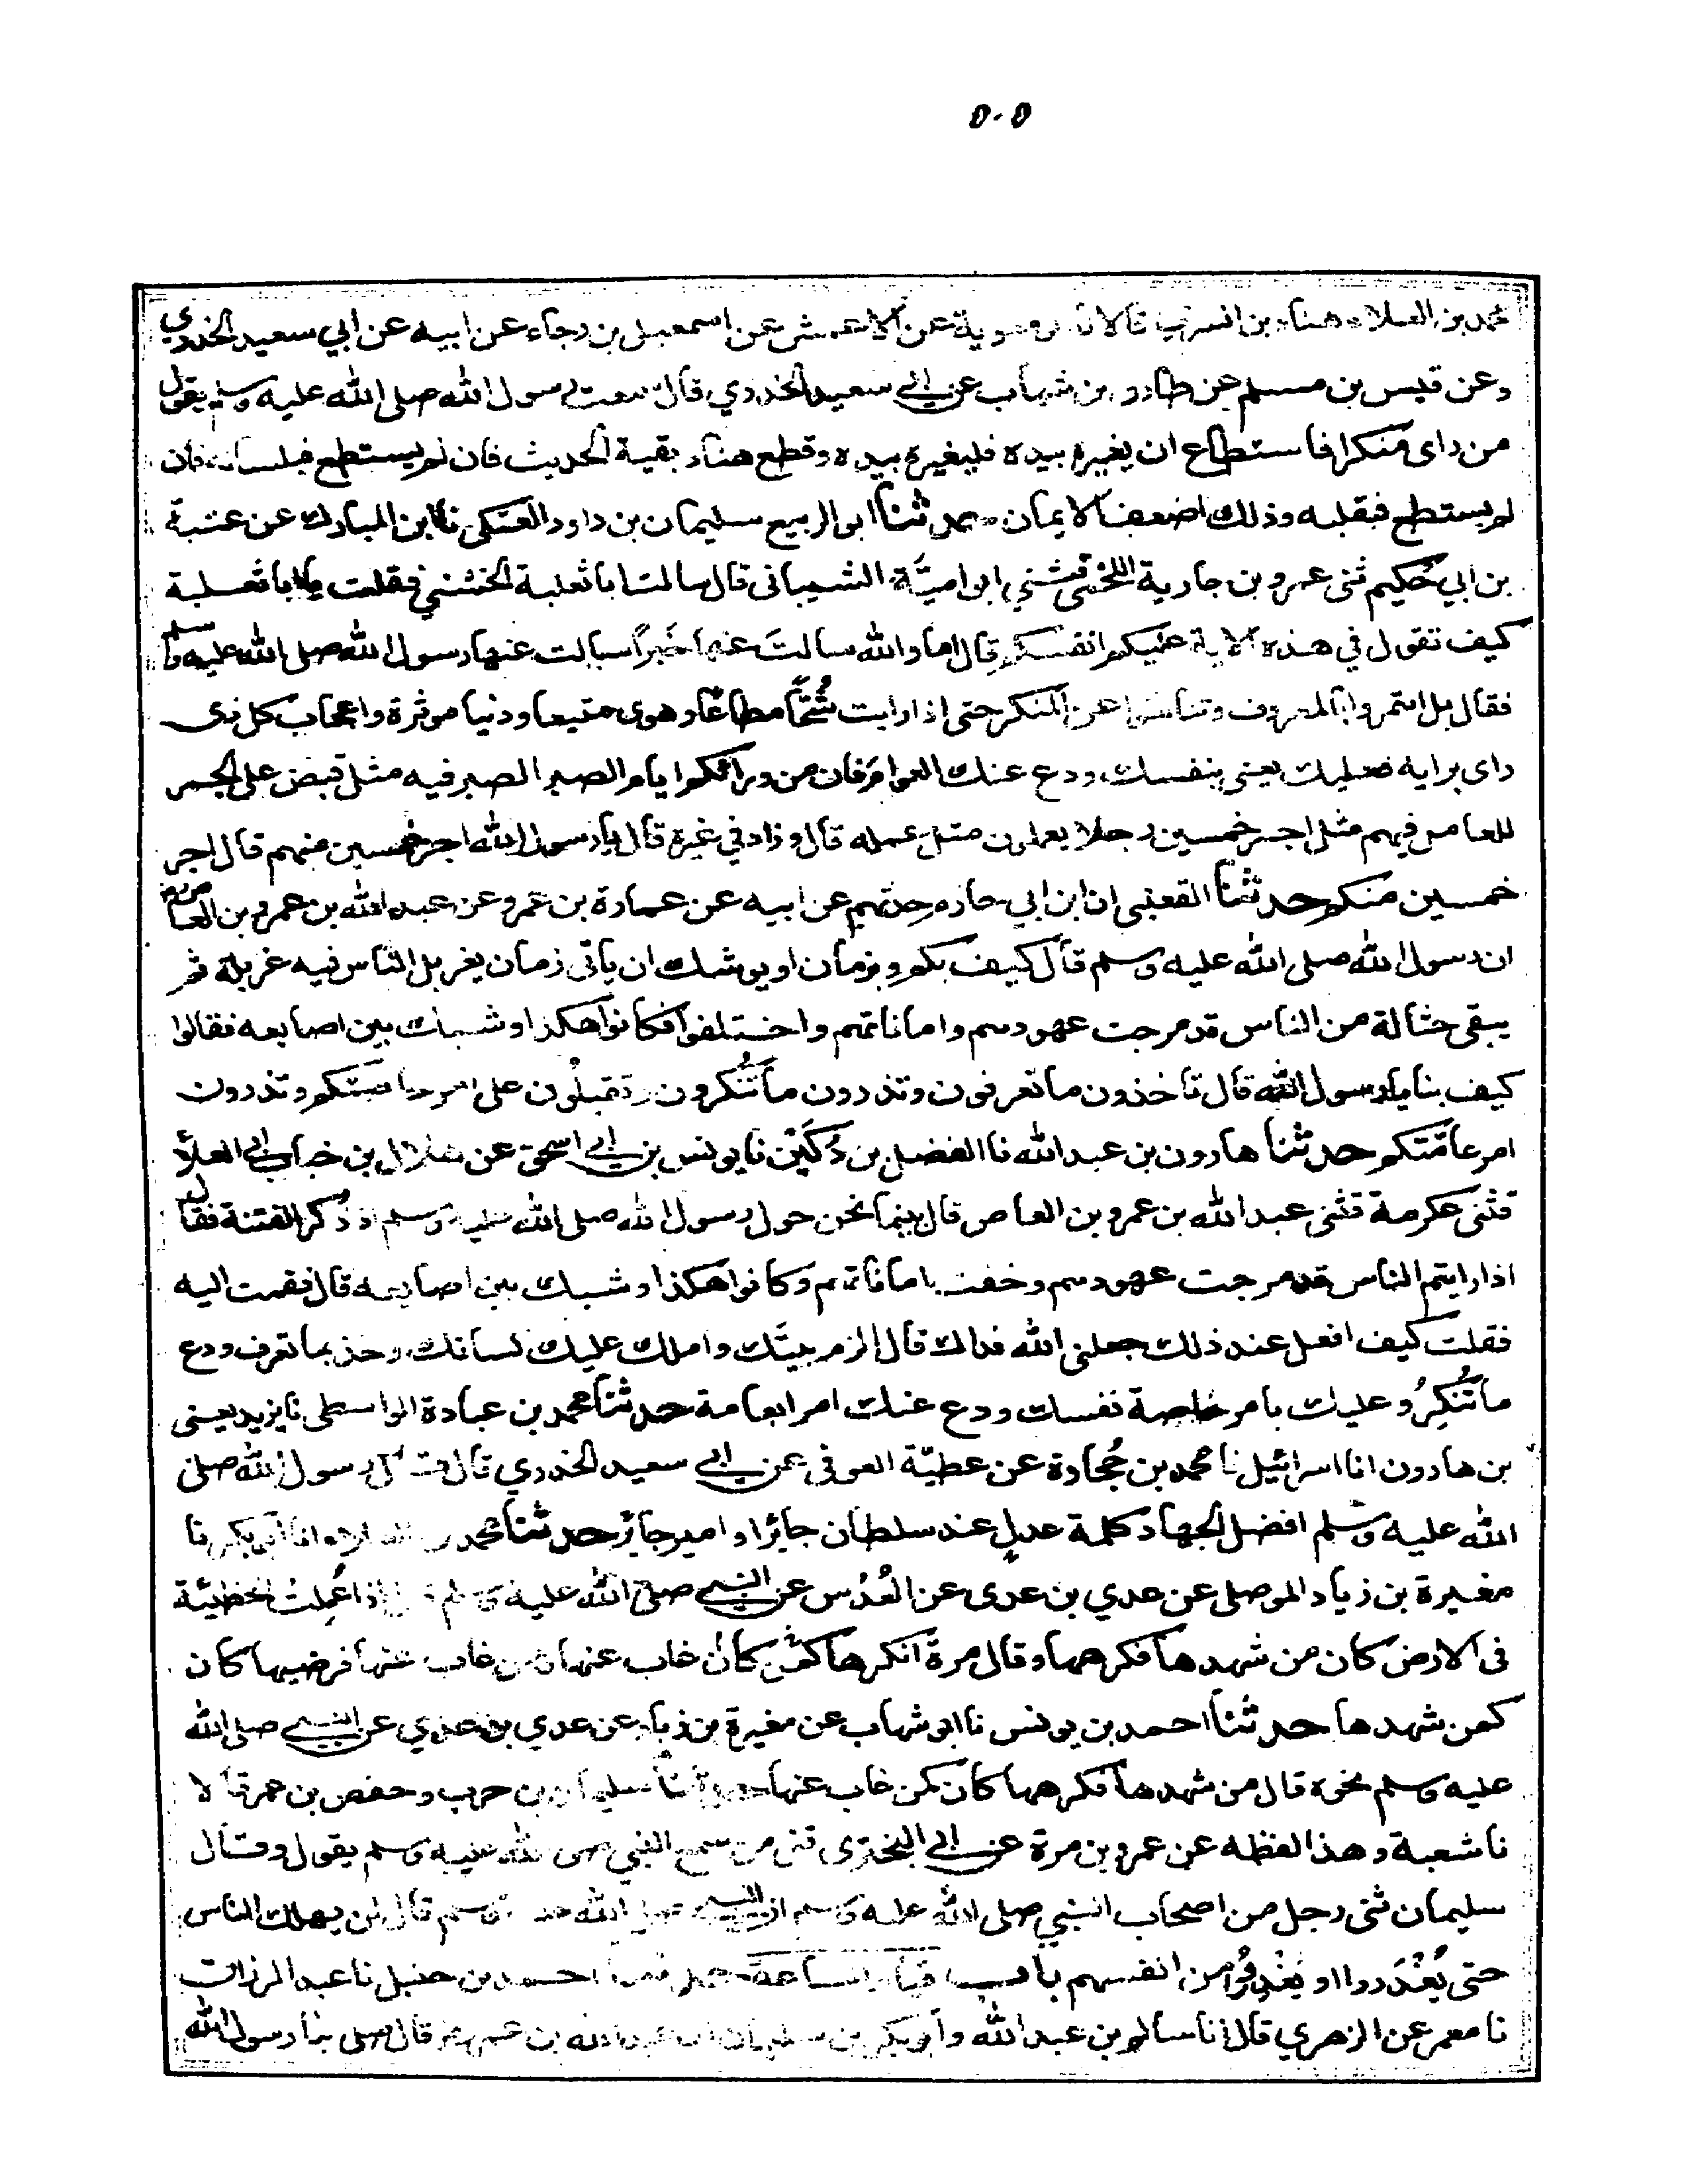 ٥٠٥
محمد بن العلاء وهناد بن السري قالا نا ابو معوية عن الاعمش عن اسمعيل بن رجاء عن ابيه عن ابي سعيد الخدري
وعن قيس بن مسلم عن طارق بن شهاب عن ابي سعيد الخدري قال سمعت رسول الله صلى الله عليه وسلم يقول
من راى منكرا فاستطاع ان يغيره بيده فليغيره بيده وقطع هناد بقية الحديث فان لم يستطع فبلسانه فان
لم يستطع فبقلبه وذلك اضعف الايمان حدثنا ابو الربيع سليمان بن داود العتكى نا ابن المبارك عن عتبة
بن ابي حكيم ثنى عمرو بن جارية اللخمى ثنى ابو اميّة الشيبانى قال سالت ابا ثعلبة الخشني فقلت يا ابا ثعلبة
كيف تقول في هذه الاية عليكم انفسكم قال اما والله سالتَ عنها خَبيراً سالت عنها رسول الله صلى الله عليه وسلم
فقال بل ائتمروا بالمعروف وتناهوا عن المنكر حتى اذا رايت شُحّاً مطاعًا وهوى متبعا ودنيا موثرة واعجاب كل ذى
راى برايه فعليك يعنى بنفسك ودع عنك العوام فان من ورائكم ايام الصبر الصبر فيه مثل قبض على الجمر
للعامل فيهم مثل اجر خمسين رجلا يعملون مثل عمله قال وزاد في غيره قال يا رسول الله اجر خمسين منهم قال اجر
خمسين منكم حدثنا القعنبى ان ابن ابي حازم حدثهم عن ابيه عن عمارة بن عمرو عن عبد الله بن عمرو بن العاص
ان رسول الله صلى الله عليه وسلم قال كيف بكم وبزمان او يوشك ان ياتى زمان يغربل الناس فيه غربلة ثم
يبقى حثالة من الناس قد مرجت عهودهم واماناتهم واختلفوا فكانوا هكذا وشبك بين اصابعه فقالوا
كيف بنا يا رسول الله قال تاخذون ما تعرفون وتذرون ما تُنكرون وتقبلون على امر خاصتكم وتذرون
امر عامّتكم حدثنا هارون بن عبد الله نا الفضل بن دُكَيْن نا يونس بن ابي اسحق عن هلال بن خباب ابي العلاء
قثنى عكرمة قثنى عبد الله بن عمرو بن العاص قال بينما نحن حول رسول الله صلى الله عليه وسلم اذ ذُكر الفتنة فقال
اذا رايتم الناس قد مرجت عهودهم وخفت اماناتهم وكانوا هكذا وشبك بين اصابعه قال فقمت اليه
فقلت كيف افعل عند ذلك جعلنى الله فداك قال الزم بيتَك واملك عليك لسانك وخذ بما تعرف ودع
ما تُنكِرُ وعليك بامر خاصة نفسك ودع عنك امر العامة حدثنا محمد بن عبادة الواسطى نا يزيد يعنى
بن هارون انا اسرائيل نا محمد بن جُحادة عن عطيّة العوفى عن ابي سعيد الخدري قال قال رسول الله صلى
الله عليه وسلم افضل الجهاد كلمة عدلٍ عند سلطان جائر او امير جائر حدثنا محمد بن العلاء انا ابو بكر نا
مغيرة بن زياد الموصلى عن عدي بن عدى عن العُرْس عن النبي صلى الله عليه وسلم قال اذا عُمِلتْ الخطيئة
فى الارض كان من شهدها فكرهها وقال مرة انكرها كمن كان غاب عنها ومن غاب عنها فرضيها كان
كمن شهدها حدثنا احمد بن يونس نا ابو شهاب عن مغيرة بن زياد عن عدي بن عدي عن النبي صلى الله
عليه وسلم نحوه قال من شهدها فكرهها كان كمن غاب عنها حدثنا سليمان بن حرب وحفص بن عمر قالا
نا شعبة وهذا لفظه عن عمرو بن مرة عن ابي البخترى قثنى من سمع النبي صلى الله عليه وسلم يقول وقال
سليمان ثنى رجل من اصحاب النبي صلى الله عليه وسلم ان النبي صلى الله عليه وسلم قال لن يهلك الناس
حتى يُعْذَروا او يُعْذِرُوا من انفسهم باب قيام الساعة حدثنا احمد بن حنبل نا عبد الرزاق
نا معمر عن الزهري قال انا سالم بن عبد الله وابو بكر بن سليمان ان عبد الله بن عمر قال صلى بنا رسول الله